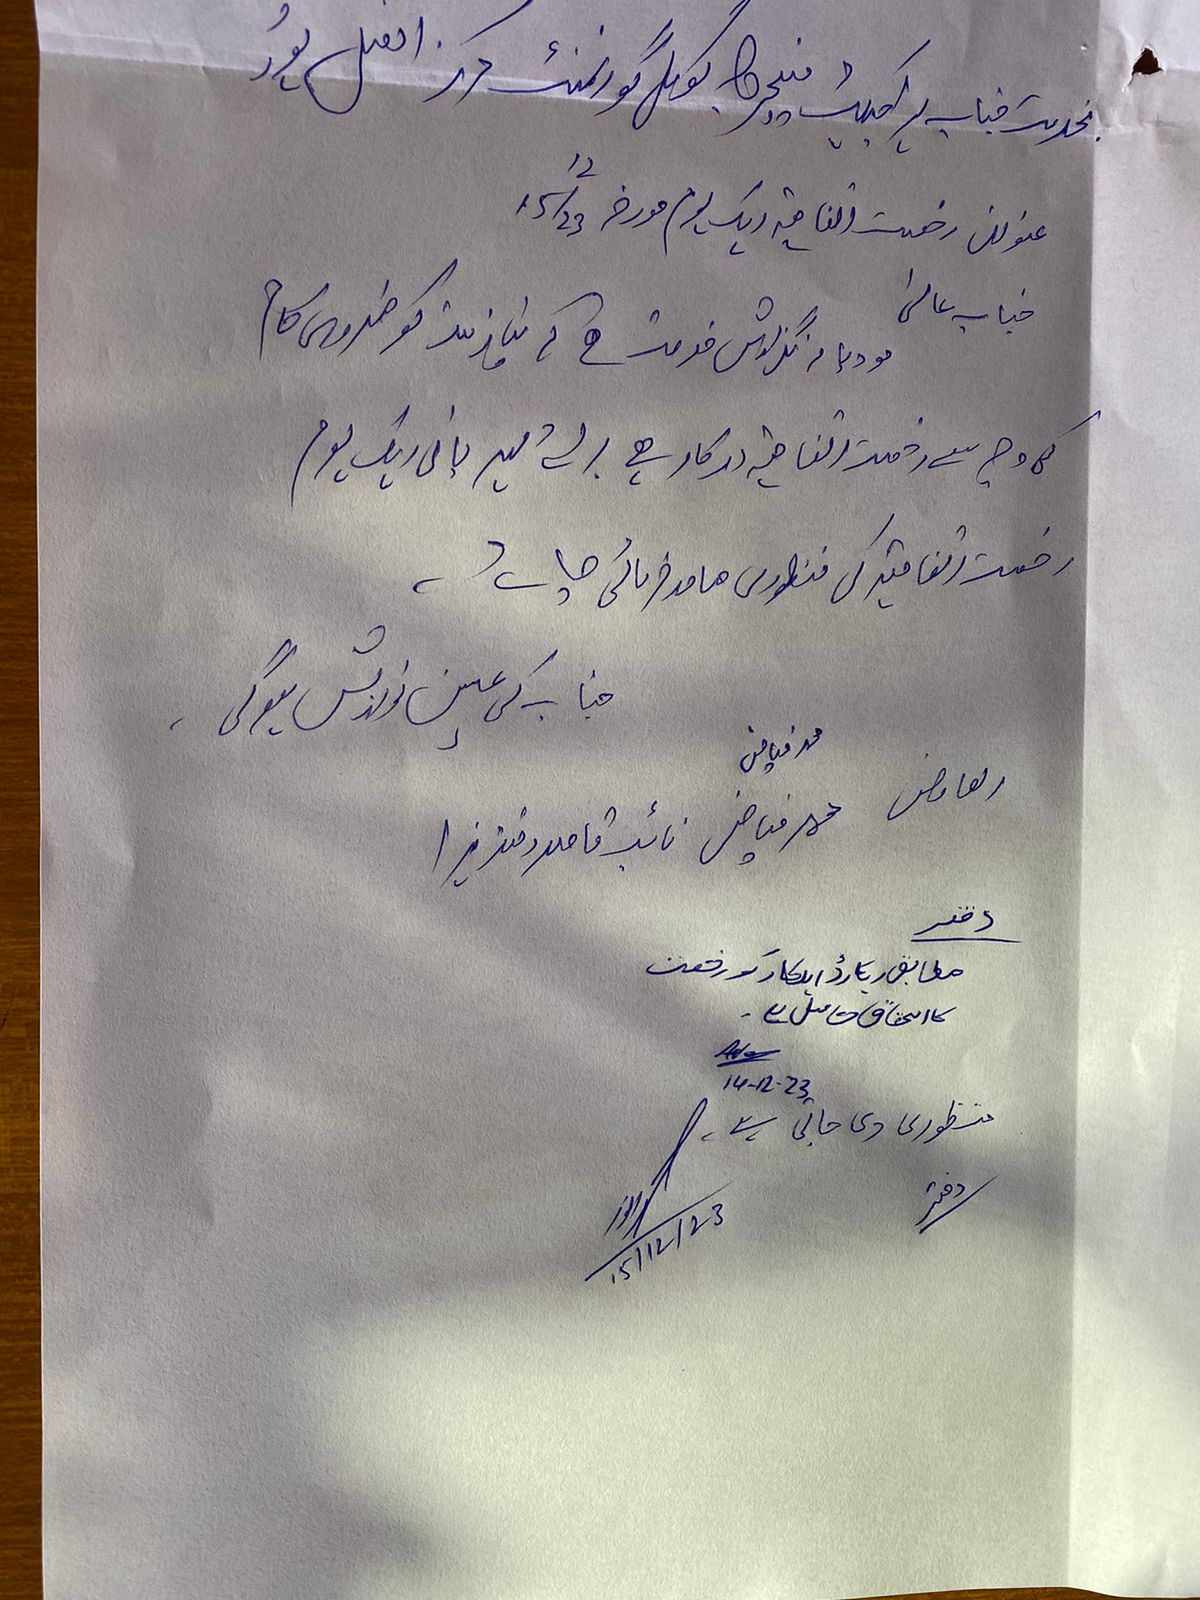 بخدمت جناب پراجیکٹ منیجر لوکل گورنمنٹ مرکز افضل پور
عنوان رخصت اتفاقیہ ایک یوم مورخہ 15/12/23
جناب عالی
مودبانہ گزارش خدمت ہے کہ نیازمند کو ضروری کام
کی وجہ سے رخصت اتفاقیہ درکار ہے برائے مہربانی ایک یوم
رخصت اتفاقیہ کی منظوری صادر فرمائی جائے
جناب کی عین نوازش ہوگی ۔
محمد فیاض
العارض محمد فیاض نائب قاصد دفتر ہذا
دفتر
مطابق ریکارڈ اہلکار کو رخصت
کا استحقاق حاصل ہے ۔
14-12-23
منظوری دی جاتی ہے ۔
دفتر
15/12/23